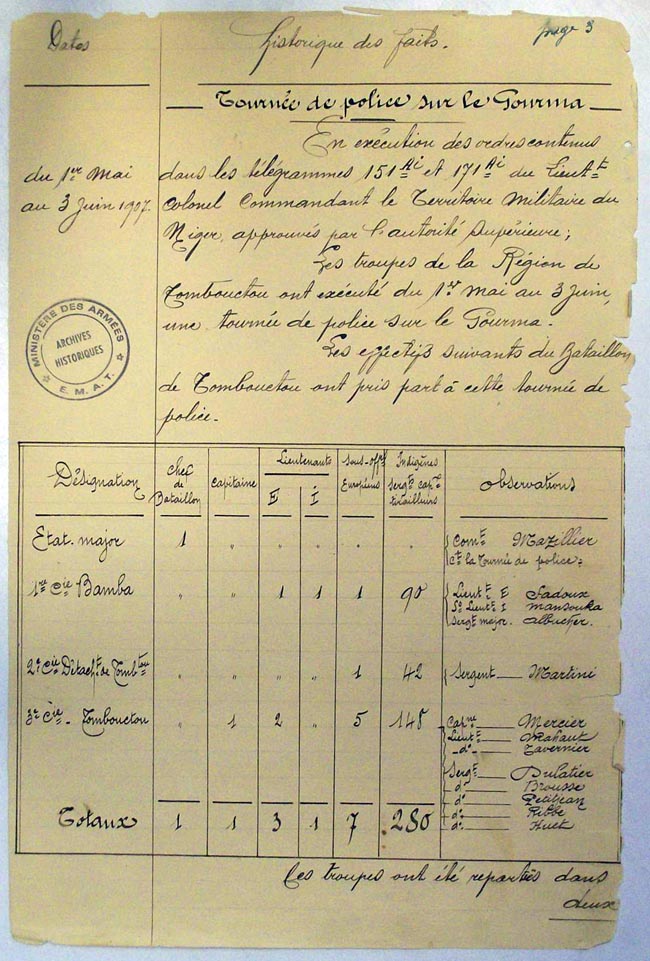 Dates
Historique des faits.
page 3
Tournée de police sur le Gourma
du 1er Mai
au 3 Juin 1907.
En exécution des ordres contenus
dans les télégrammes 151 Ai et 171 Ai du Lieutt
Colonel Commandant le Territoire Militaire du
Niger, approuvés par l'autorité Supérieure;
Les troupes de la Région de
Tombouctou ont exécuté du 1er Mai au 3 Juin,
une tournée de police sur le Gourma.
Les effectifs suivants du Bataillon
de Tombouctou ont pris part à cette tournée de
police.
MINISTÈRE DES ARMÉES
ARCHIVES
HISTORIQUES
E. M. A. T.
Désignation Chef de Bataillon Capitaine Lieutenants E I Sous-offrs Européens Indigènes Sergts Capx tirailleurs Observations
Etat. major 1 " " " " " Comt Mazillier
Ct la Tournée de police.
1re Cie Bamba " " 1 1 1 90 Lieutt E Fadoux
Ss Lieutt I Mansouka
Sergt major. Albucher.
2e Cie Détacht de Tombtou " " " " 1 42 Sergent Martini
3e Cie Tombouctou " 1 2 " 5 148 Capne Mercier
Lieutt Mahaut
-do- Tavernier
Sergt
do Brousse
do Petitjean
do Ribbe
do Huet
Totaux 1 1 3 1 7 280
Ces troupes ont été reparties dans
deux